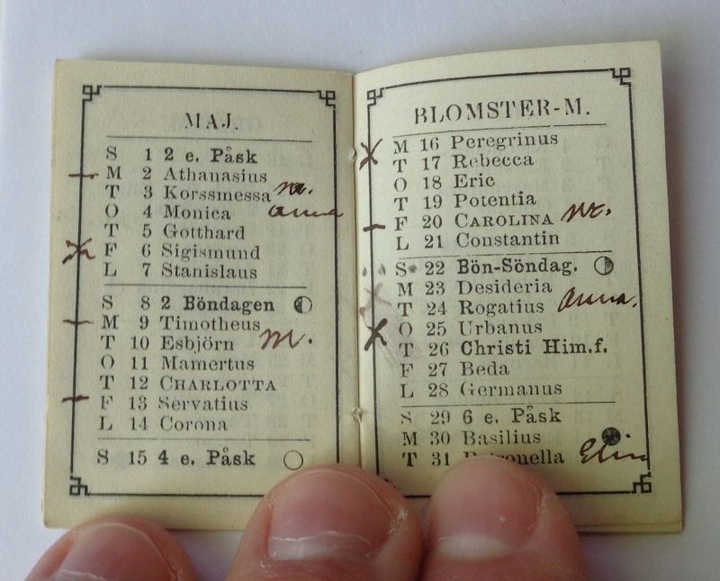 MAJ.
S 1 2 e. Påsk
M 2 Athanasius
T 3 Korssmessa m.
O 4 Monica anna
T 5 Gotthard
F 6 Sigismund
L 7 Stanislaus
S 8 2 Böndagen
M 9 Timotheus
T 10 Esbjörn m.
O 11 Mamertus
T 12 CHARLOTTA
F 13 Servatius
L 14 Corona
S 15 4 e. Påsk
BLOMSTER-M.
M 16 Peregrinus
T 17 Rebecca
O 18 Eric
T 19 Potentia
F 20 CAROLINA m.
L 21 Constantin
S 22 Bön-Söndag.
M 23 Desideria
T 24 Rogatius anna.
O 25 Urbanus
T 26 Christi Him.f.
F 27 Beda
L 28 Germanus
S 29 6 e. Påsk
M 30 Basilius
T 31 Petronella Elin